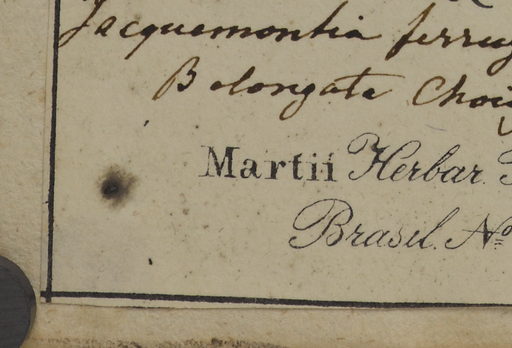 Jacquemontia ferrug
β elongata Chois
Martii Herbar.
Brasil. No